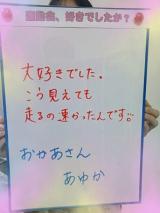 運動会、好きでしたか？
大好きでした。
こう見えても
走るの速かったんです。
おかあさん
あゆか